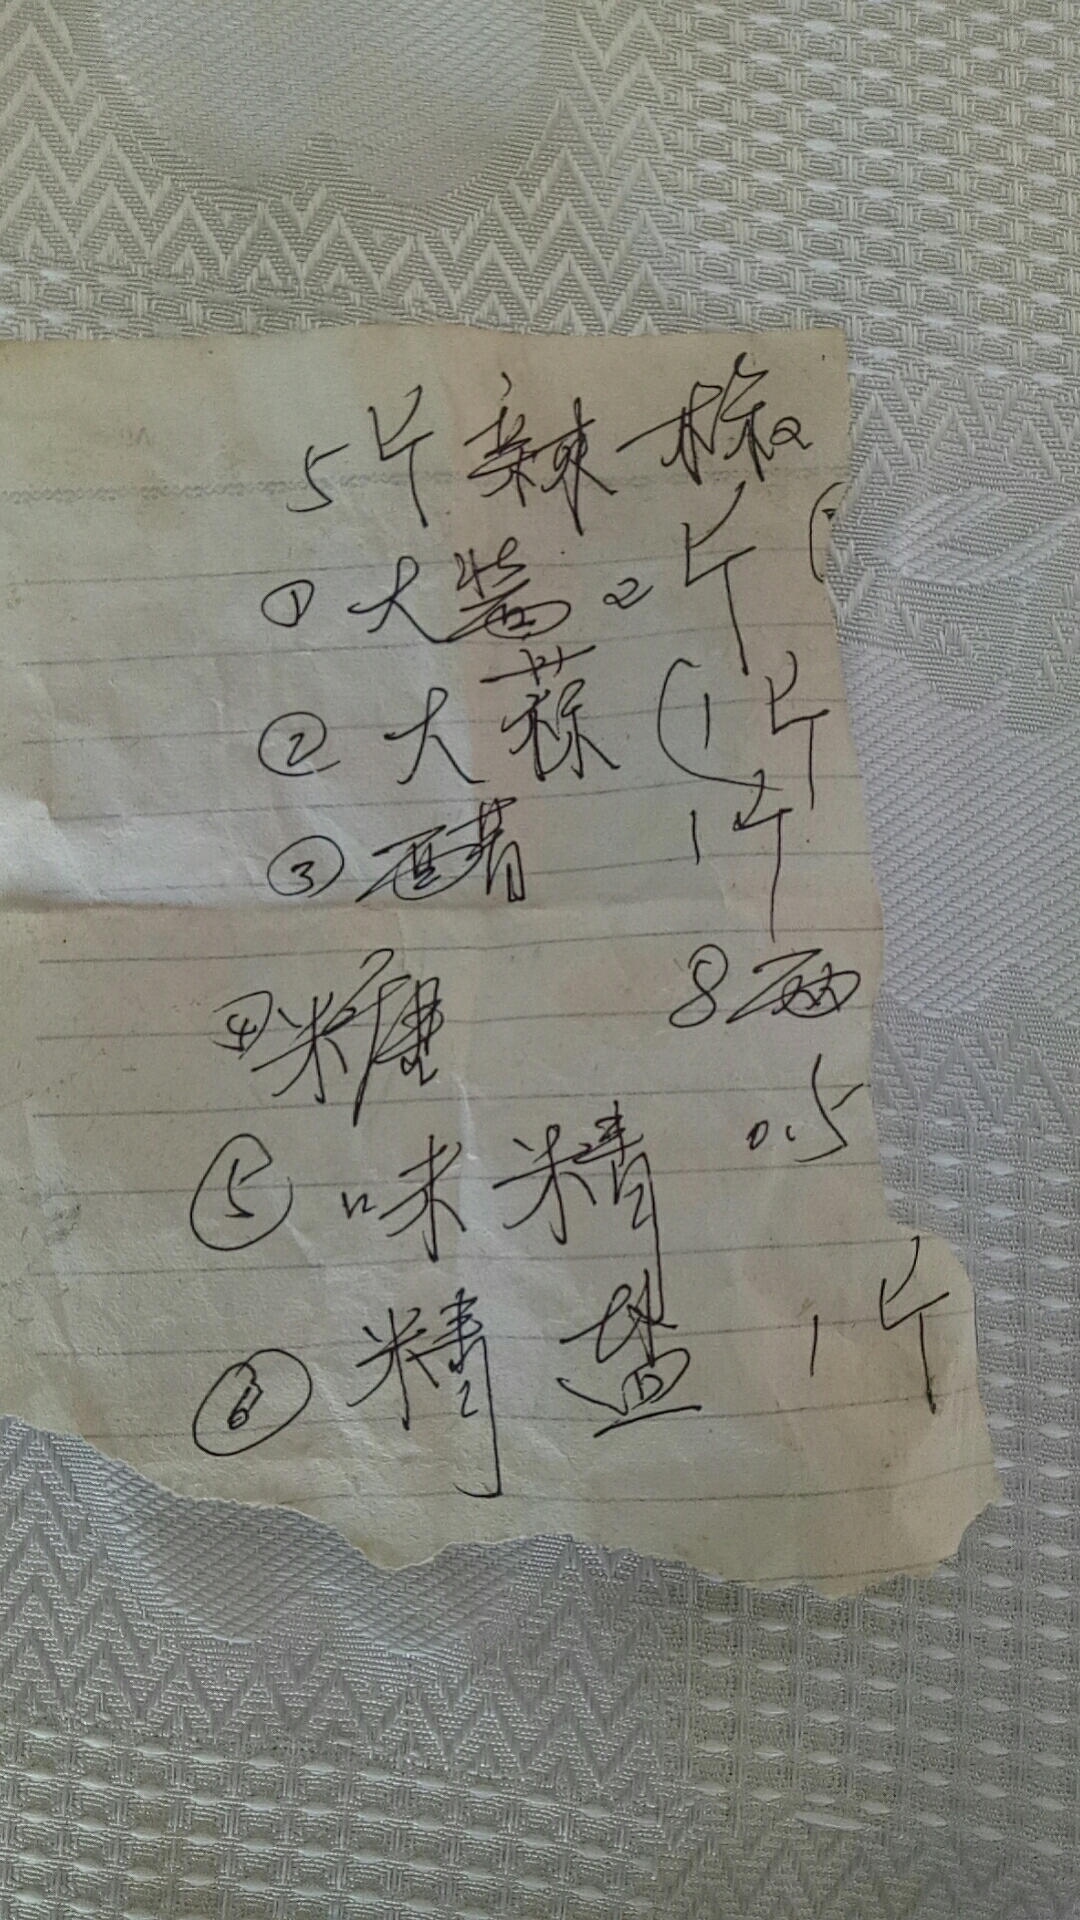 5斤辣椒
①大酱2斤(
②大蒜(1斤
③醋 1斤
④糖 8两
⑤味精 0.5
⑥精盐 1斤